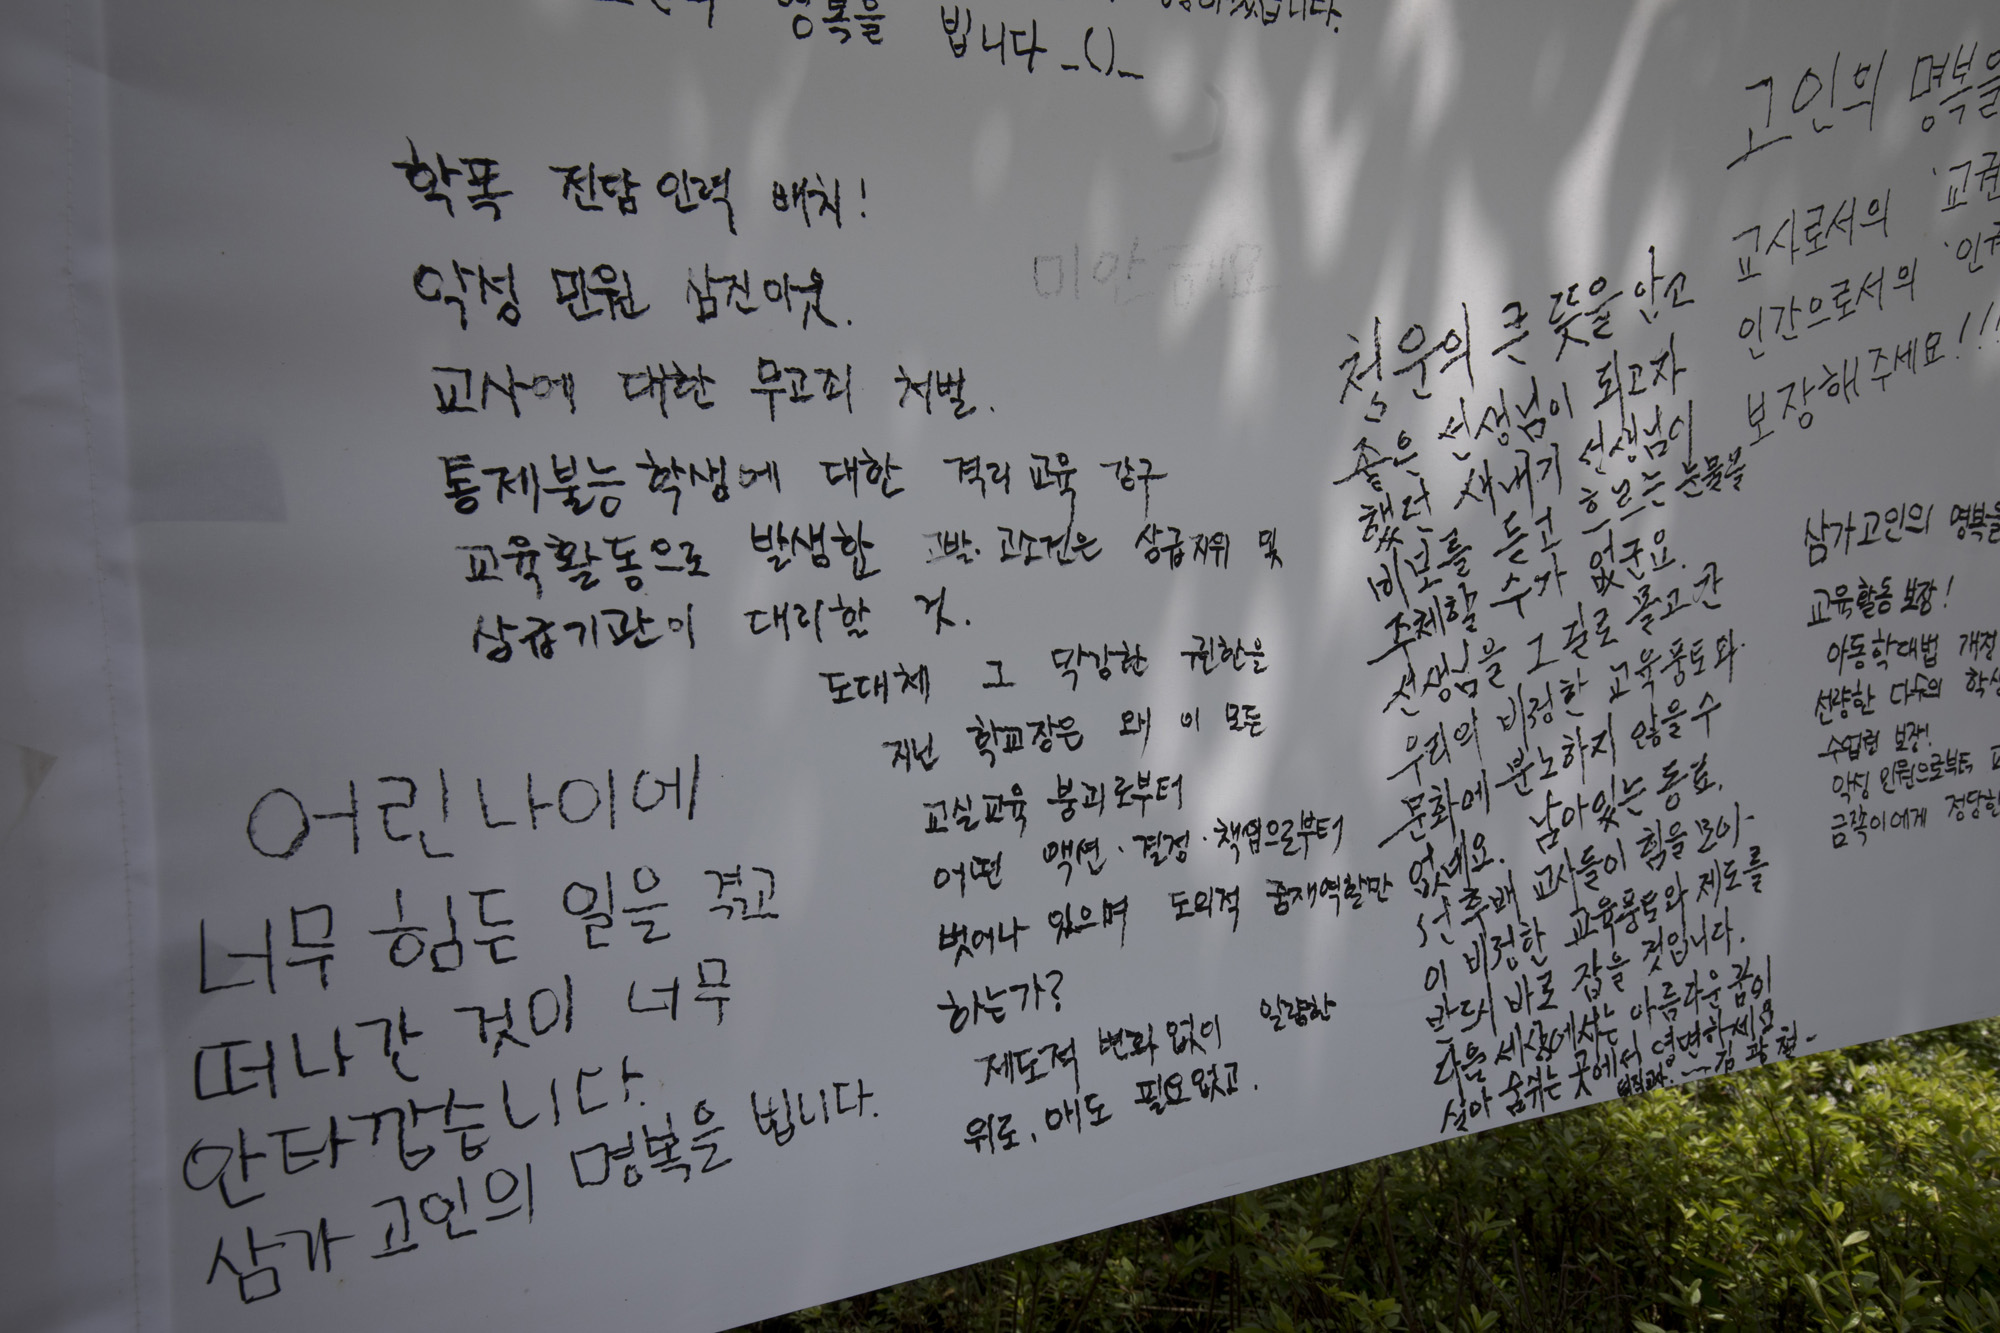 명복을 빕니다_()_
학폭 전담 인력 배치!
악성 민원 삼진아웃.
교사에 대한 무고죄 처벌.
통제불능 학생에 대한 격리 교육 강구
교육활동으로 발생한 고발·고소건은 상급자위 및
상급기관이 대리할 것.
도대체 그 막강한 권한을
지닌 학교장은 왜 이 모든
교실교육 붕괴로부터
어떤 액션·결정·책임으로부터
벗어나 있으며 도의적 중재역할만
하는가?
제도적 변화 없이 일렬한
위로, 애도 필요없고.
어린 나이에
너무 힘든 일을 겪고
떠나간 것이 너무
안타깝습니다.
삼가 고인의 명복을 빕니다.
미안해요
청운의 큰 뜻을 안고
좋은 선생님이 되고자
했던 새내기 선생님이
비보를 듣고 흐르는 눈물을
주체할 수가 없군요.
선생님을 그 길로 몰고 간
우리의 비정한 교육풍토와
문화에 분노하지 않을 수
없네요. 남아있는 동료.
선후배 교사들이 힘을 모아
이 비정한 교육풍토와 제도를
반드시 바로 잡을 것입니다.
다음 세상에서는 아름다운 꿈이
살아 숨쉬는 곳에서 영면하세요
퇴직교사. 김광철-
고인의 명복을
교사로서의 '교권
인간으로서의 '인권
보장해주세요!!!
삼가고인의 명복을
교육활동 보장!
아동학대법 개정
선량한 다수의 학생
수업권 보장!
악성 민원으로부터 교
금쪽이에게 정당한